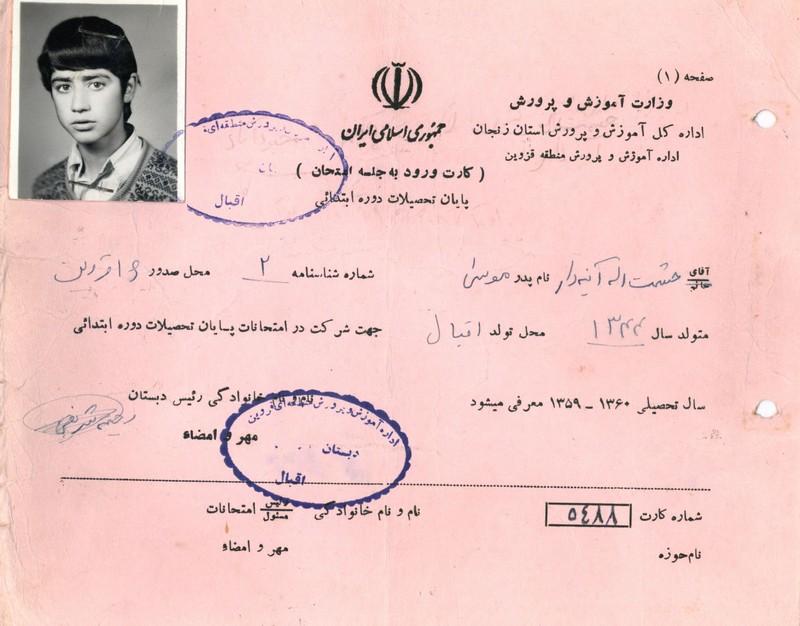 صفحه (۱)
وزارت آموزش و پرورش
جمهوری اسلامی ایران
اداره کل آموزش و پرورش استان زنجان
اداره آموزش و پرورش منطقه قزوین
( کارت ورود به جلسه امتحان )
پایان تحصیلات دوره ابتدائی
اقبال
آقای خانم حشمت اله آینه دار نام پدر موسی شماره شناسنامه ۲ محل صدور قزوین
متولد سال ۱۳۴۴ محل تولد اقبال جهت شرکت در امتحانات پایان تحصیلات دوره ابتدائی
سال تحصیلی ۱۳۶۰ - ۱۳۵۹ معرفی میشود
نام و نام خانوادگی رئیس دبستان
مهر و امضاء
اداره آموزش و پرورش منطقه ای قزوین
دبستان
اقبال
شماره کارت ۵۴۸۸ نام و نام خانوادگی رئیس مسئول امتحانات
نام حوزه مهر و امضاء